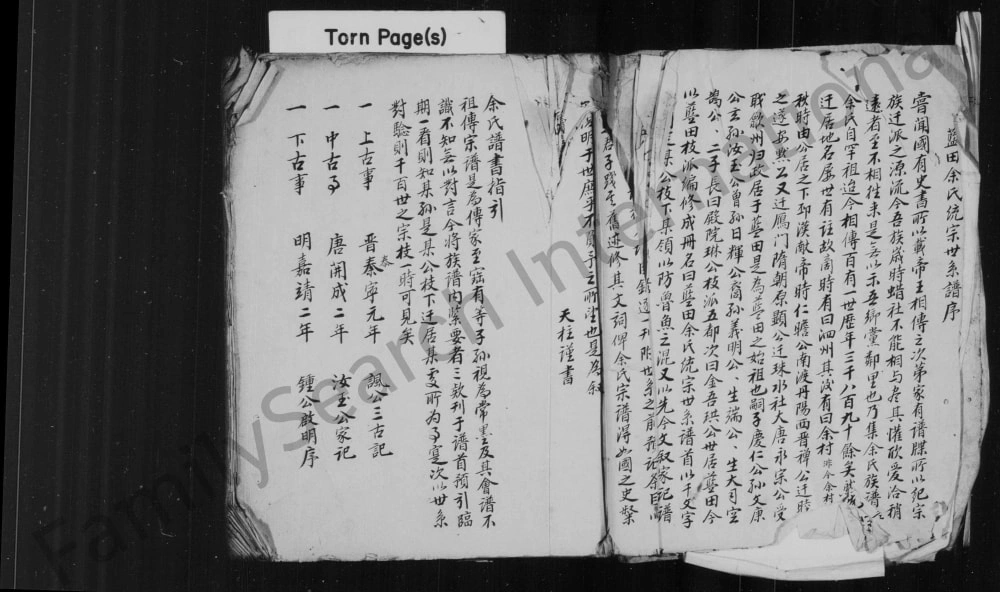 Torn Page(s)
藍田余氏統宗世系譜序
嘗聞國有史書所以載帝王相傳之次第家有譜牒所以紀宗
族迁派之源流今吾族歲時蜡社不能相与尽其懽欣受洽稍
遠者至不相往来是無以示吾鄉黨鄰里也乃集余氏族譜
余氏自罕祖迨今相傳百有一世歷年三千八百九十餘矣
迁居地名屡世有註政商時有曰泗州其後有曰余村 即今余村
秋時由公居之下邳漢献帝時仁瞻公南渡丹陽西晋禅公迁睦
之遂安黙公又迁鴈门隋朝原顯公迁珠水社大唐永宗公受
戢歙州归政居于藍田是為藍田之始祖也嗣子慶仁公孙文康
公玄孙汝玉公曾孙日輝公裔孙義明公、生端公、生大司空
鹄公、二子長曰殿院琳公枝派五都次曰金吾珙公世居藍田今
以藍田枝派编修成册名曰藍田余氏統宗世系谱首以千文字
某公枝下某領以防魯魚之混又以先今文叙家记
君子践吾旧迹修其文詞俾余氏宗谱得如國之史
明于世庶乎不負予之所望也是為叙
天柱谨書
余氏譜書指引
祖傳宗譜是為傳家至宝有等子孙視為常墨及其會谱不
識不知無以對言今將族谱内緊要者三款刊于谱首預引臨
期一看則如某孙是某公枝下迁居某处所为事寔次以世系
對驗則千百世之宗枝一時可見矣
一 上古事 晋泰寧元年 諷公三古記
一 中古事 唐開成二年 汝玉公家记
一 下古事 明嘉靖二年 鍾公啟明序
FamilySearch International